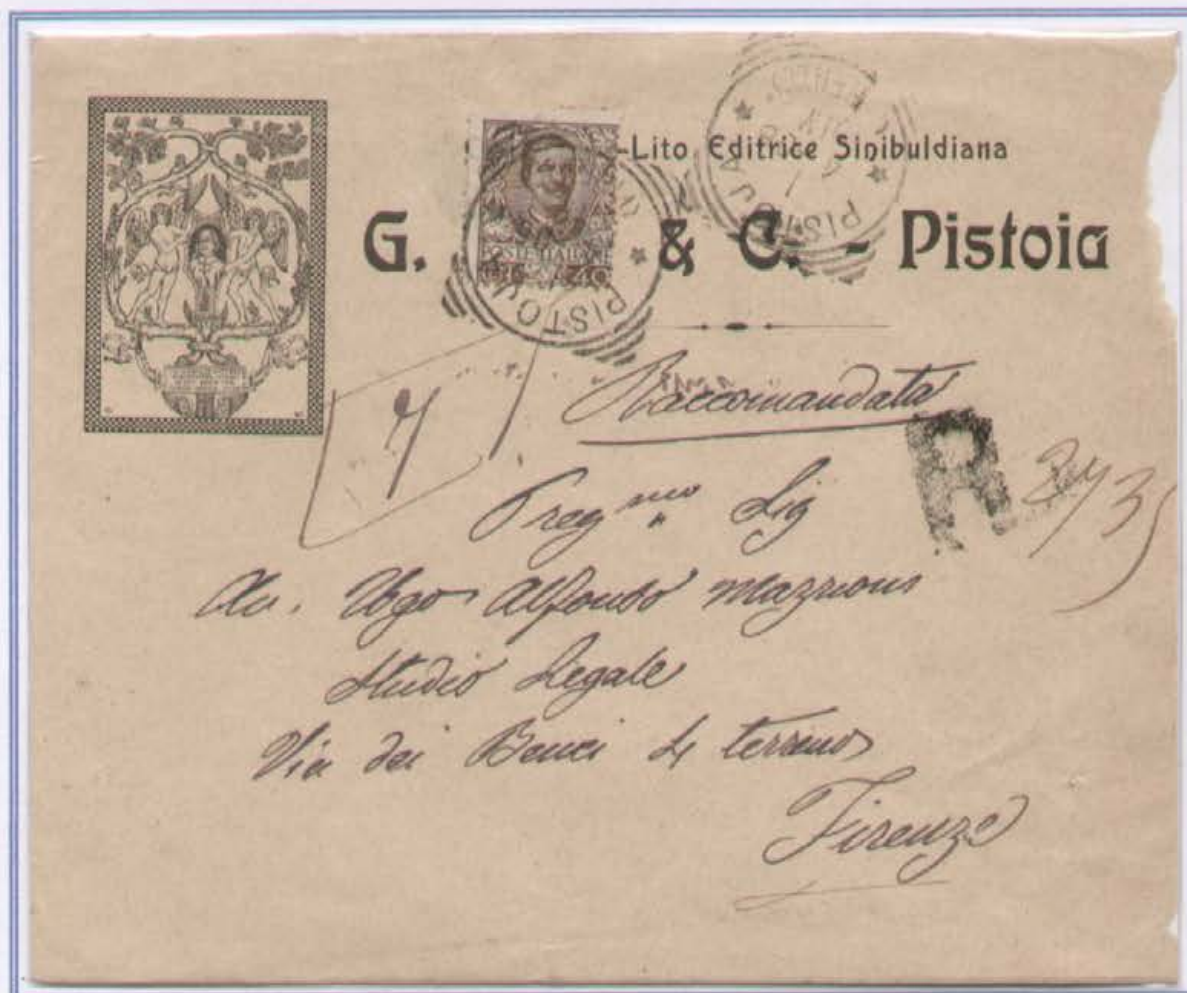 -Lito Editrice Sinibuldiana
G. & C. - Pistoia
PISTOJA
PISTOJA
40
Raccomandata
7
R
Preg mo Sig
Av. Ugo Alfonso
Studio Legale
Via dei Benci 4 terreno
Firenze